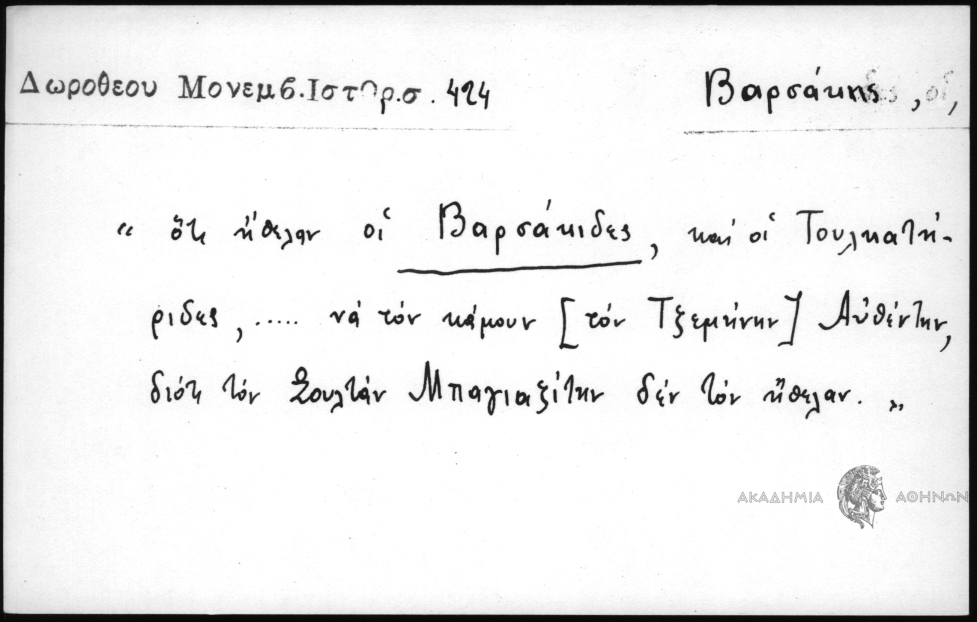 Δωροθεου Μονεμβ.Ιστορ.σ. 424
Βαρσάκης, οἱ,
« ὅτι ἤθελαν οἱ Βαρσάκιδες, καὶ οἱ Τουλκατή-
ριδες, ..... νά τόν κάμουν [τόν Τζεμήνην] Αὐθέντην,
διότι τόν Σουλτάν Μπαγιαζίτην δέν τόν ἤθελαν. »
ΑΚΑΔΗΜΙΑ ΑΘΗΝΩΝ